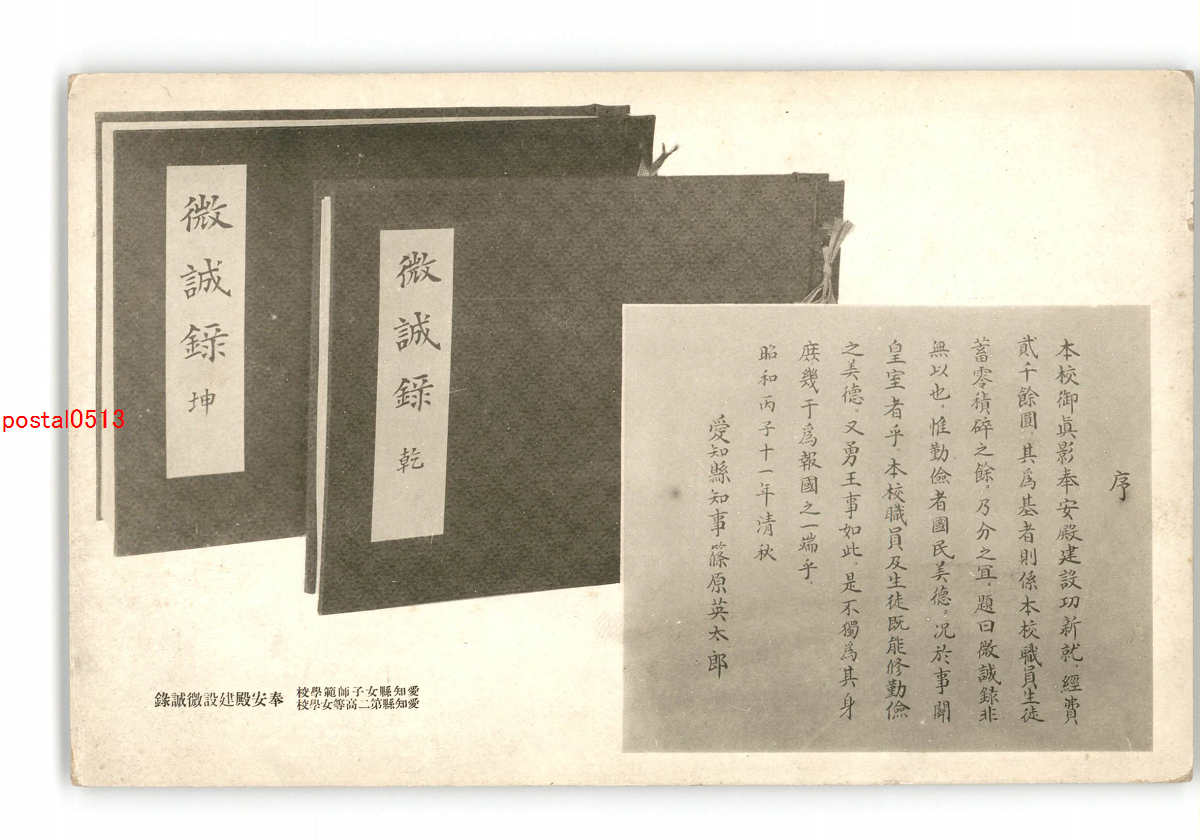 微誠録 坤
微誠録 乾
序
本校御眞影奉安殿建設功新就、經費
貳千餘圓、其爲基者則係本校職員生徒
蓄零積碎之餘、乃分之冝、題曰微誠録非
無以也、惟勤儉者國民美德、况於事關
皇室者乎、本校職員及生徒既能修勤儉
之美德、又勇王事如此、是不獨爲其身
庶幾于爲報國之一端乎、
昭和丙子十一年清秋
愛知縣知事篠原英太郎
校學範師子女縣知愛
校學女等高二第縣知愛
錄誠微設建殿安奉
postal0513